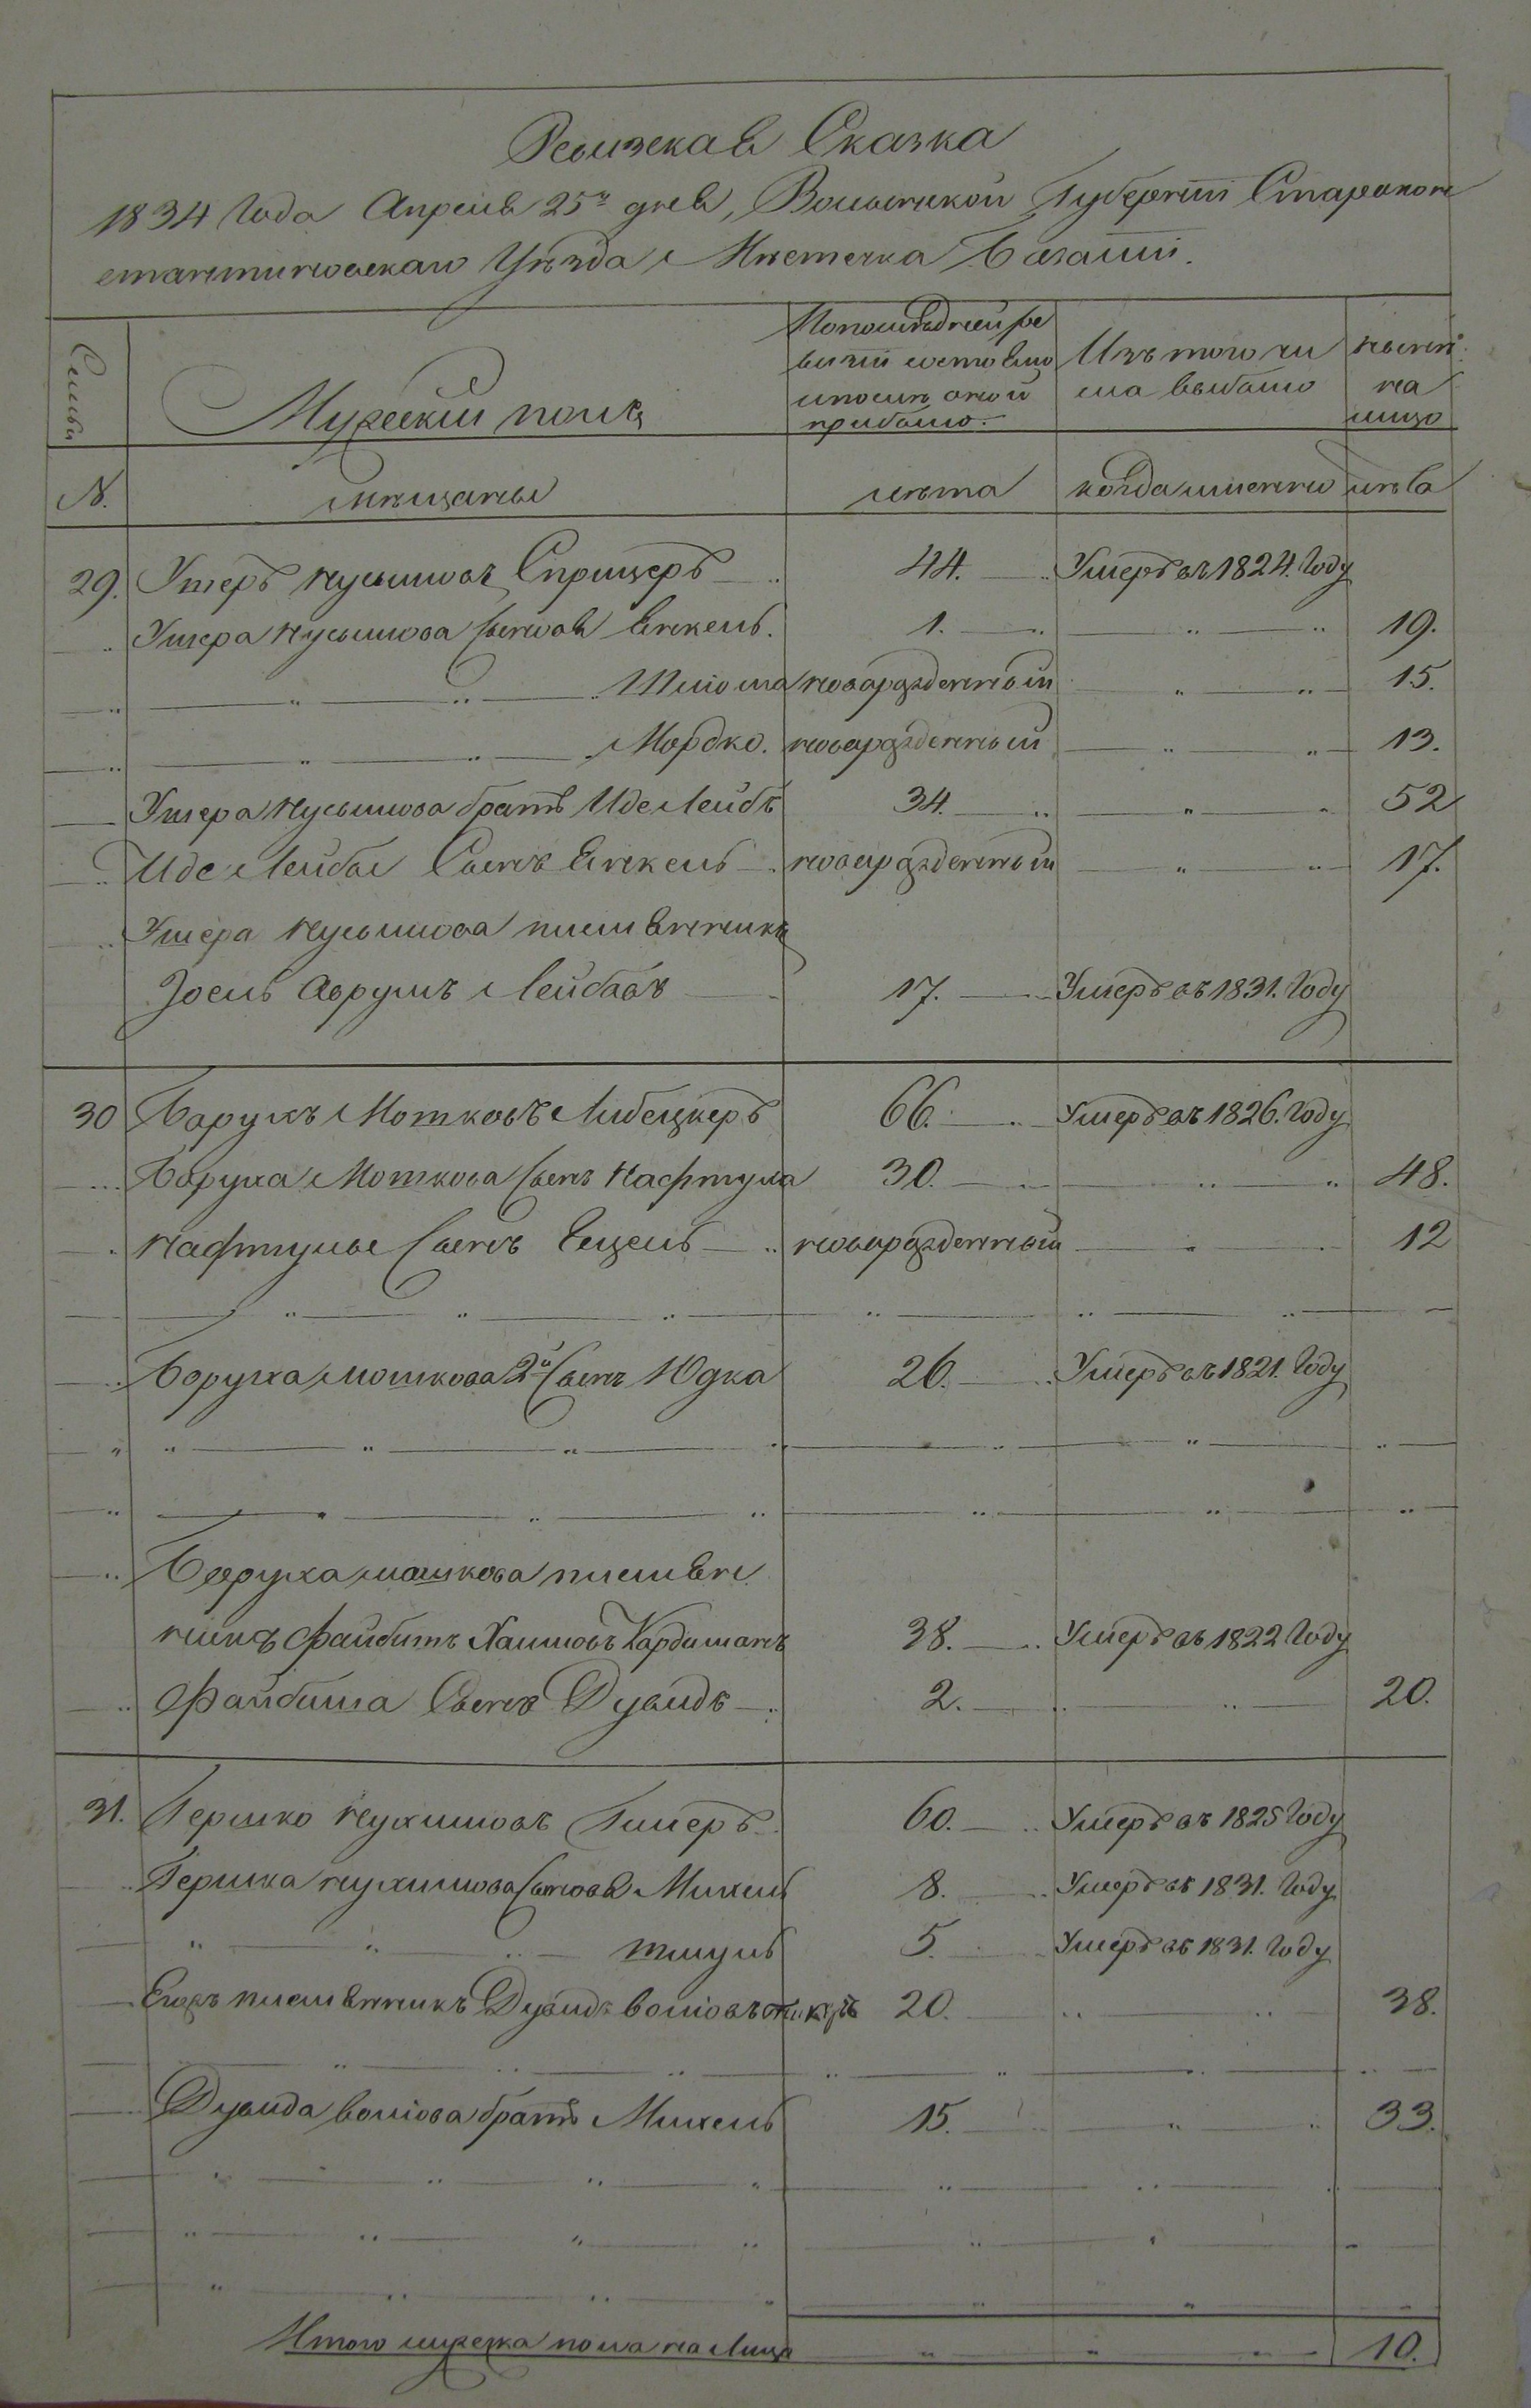 Ревизская Сказка
1834 Года Апреля 25го дня, Волынской Губернiи Старокон
стантиновскаго Уѣзда Мѣстечка Базалiи.
Семьи
Мужескiй полъ
По послѣдней ре
визiи состояло
и послѣ оной
прибыло.
Изъ того чи
сла выбыло
нынѣ
на
лицо
№.
мѣщаны
лѣта
когда именно
лѣта
29. Умеръ Нусымовъ Сприцеръ 44. Умеръ въ 1824. Году
Ушера Нусымова Сыновья Янкель. 1. 19.
Шлiома новорожденный 15.
Мордко. новорожденный 13.
Ушера Нусымова братъ Иде Лейбъ 34. 52
Иде Лейбы Сынъ Янкель новорожденный 17.
Ушера Нусымова племянникъ
Зосль Аврумъ Лейбовъ 17. Умеръ въ 1831. Году
30 Борухъ Мотковъ Либецкеръ 66. Умеръ въ 1826. Году
Боруха Моткова Сынъ Нафтула 30. 48.
Нафтулы Сынъ Ецель новорожденный 12
Боруха мошкова 2й Сынъ Юдка 26. Умеръ въ 1821. Году
Боруха мошкова племян
никъ Файбишъ Хаимовъ Кардиманъ 38. Умеръ въ 1822 Году
Файбиша Сынъ Дувидъ 2. 20.
31. Гершко Нухимовъ Гимеръ 60. Умеръ въ 1825 Году
Гершка нухимова Сыновья Михель 8. Умеръ въ 1831. Году
шмуль 5. Умеръ въ 1831. Году
Егожъ племянникъ Дувидъ Волiовъ 20. 38.
Дувида Волiова братъ Михель 15. 33.
Итого мужеска пола на Лицо 10.